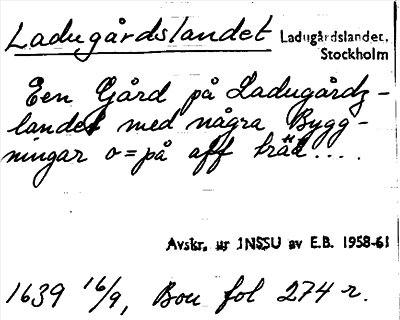 Ladugårdslandet
Ladugårdslandet,
Stockholm
Een Gård på Ladugårdz-
landet med några Bygg-
ningar o=på aff träd....
Avskr. ur INSSU av E.B. 1958-61
1639 16/9, Bou fol 274 r.